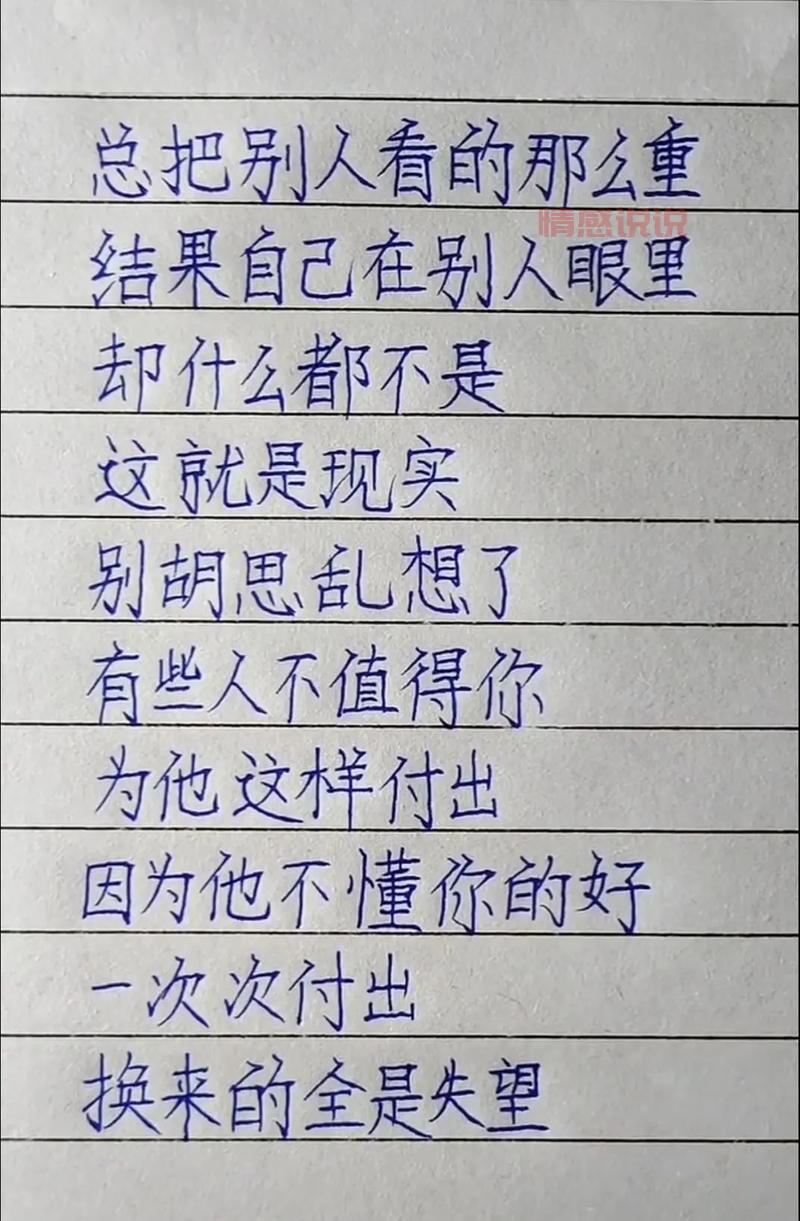 总把别人看的那么重
情感说说
结果自己在别人眼里
却什么都不是
这就是现实
别胡思乱想了
有些人不值得你
为他这样付出
因为他不懂你的好
一次次付出
换来的全是失望